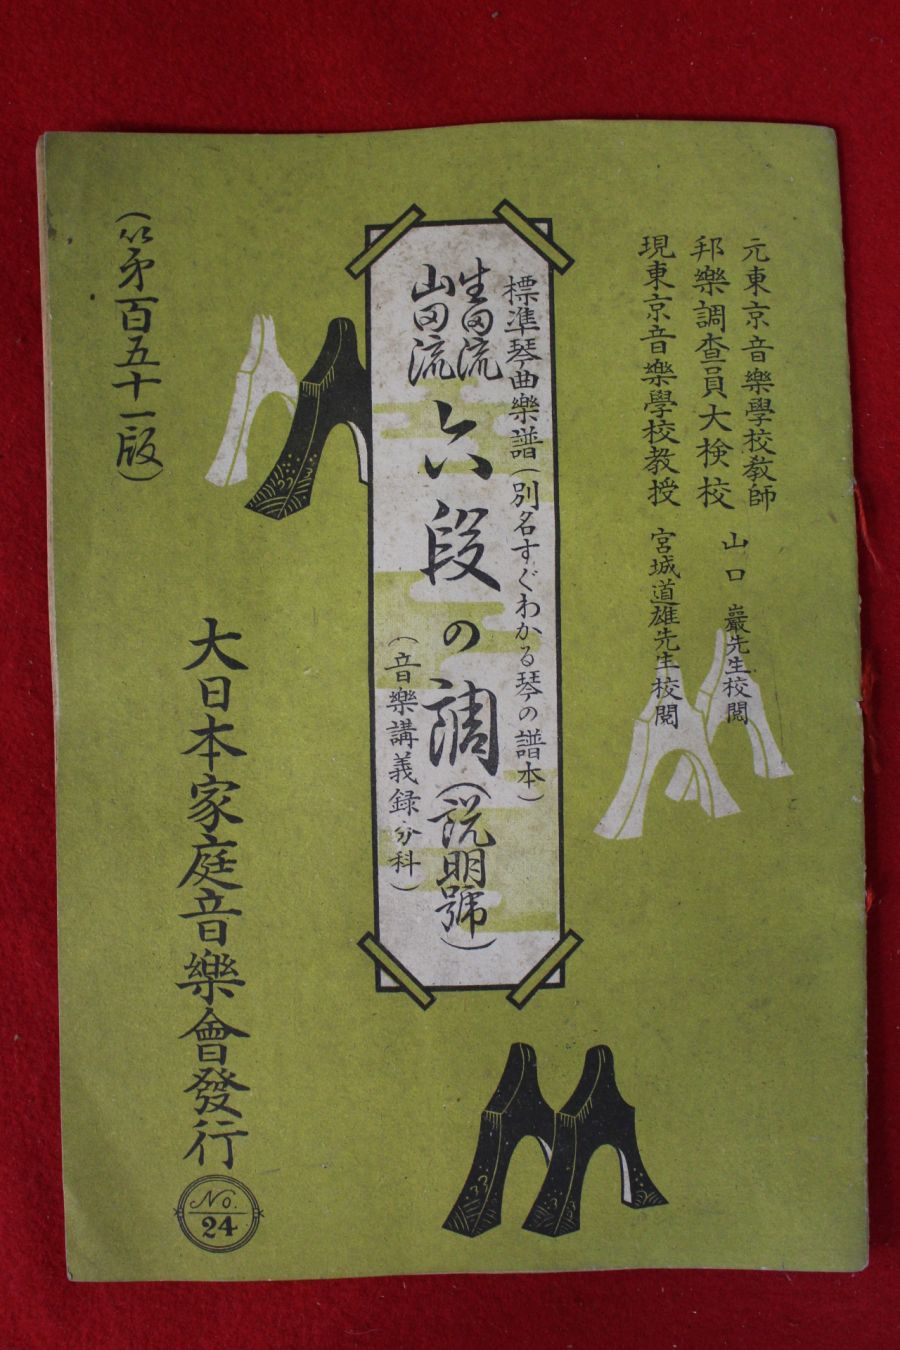 元東京音樂學校教師
邦樂調査員大検校
現東京音樂學校教授
山口巖先生校閲
宮城道雄先生校閲
標準琴曲樂譜(別名すぐわかる琴の譜本)
生田流
山田流
六段の調(説明號)
(音樂講義録分科)
大日本家庭音樂會發行
No.
24
(第百五十一版)